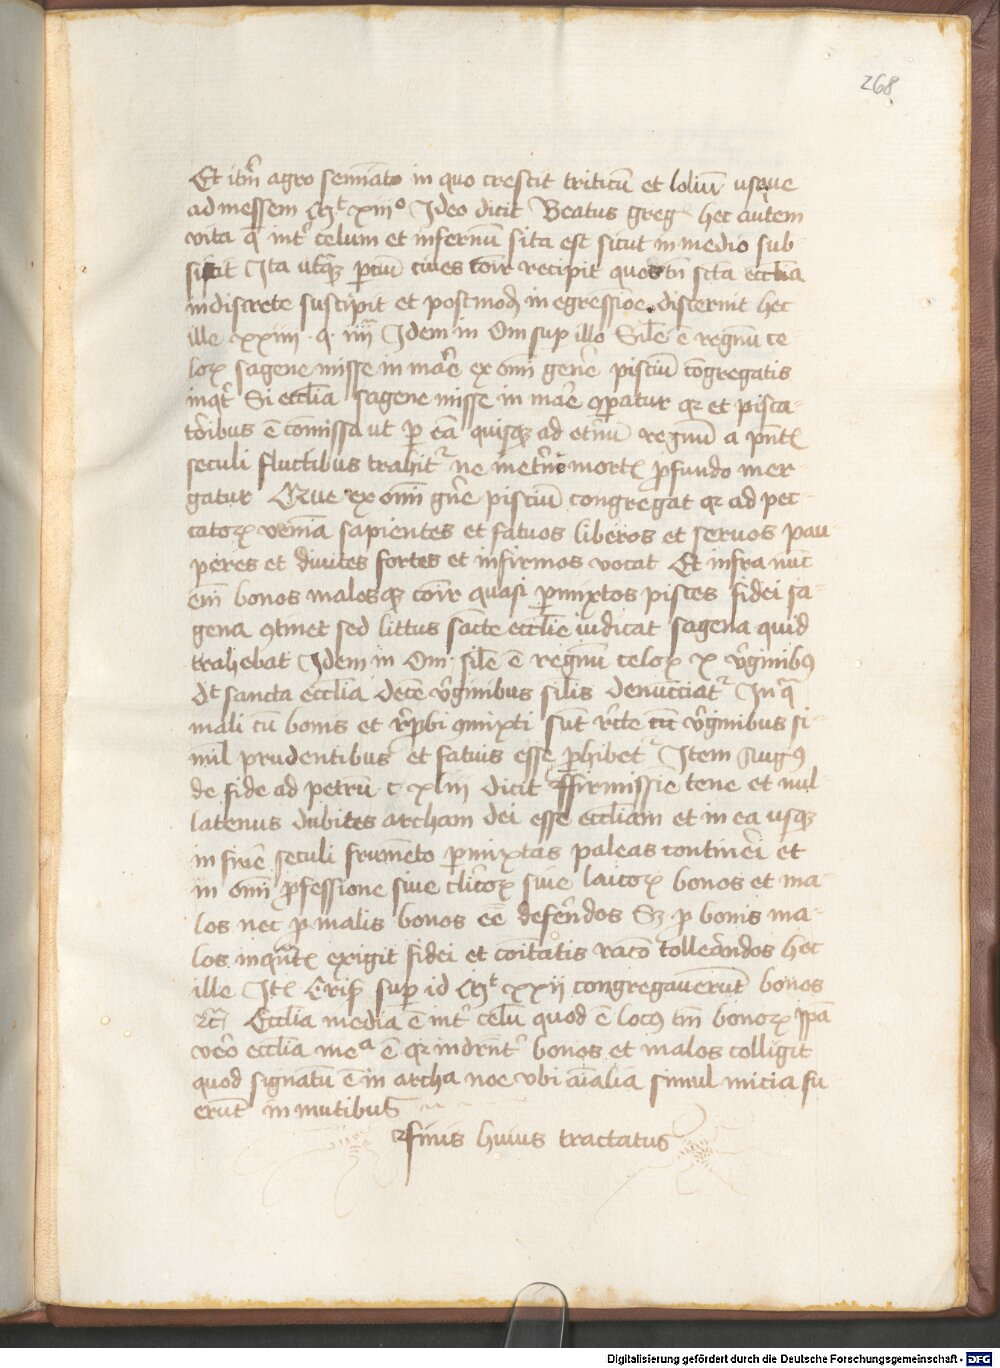 268
Et itm̄ agro semīato in quo crescit triticū et loliū usque
ad messem Mt xiii° Ideo dicit Beatus greg hec autem
vita q̄ int̄ celum et infernū sita est sicut in medio sub-
sistit Ita utq̄ꝫ ꝑciū ciues coīr recipit quos tn̄ sc̄ta ecc̄lia
indiscrete suscipit et postmod̄ in egressioe discernit hec
ille xxiiii q. iiii Idem in Om sup illo Sil̄e ē regnū ce-
loꝝ sagene misse in mar̄e ex om̄i gen̄e pisciū congregatis
inqt̄ Si ecc̄lia sagene misse in mar̄e ꝯparatur qꝛ et pisca-
toribus ē comissa ut ꝑ eā quisqꝫ ad et̄nū regnū a pn̄tꝭ
seculi fluctibus trahit̄ ne in et̄ne mortꝭ ꝓfundo mer-
gatur Que ex om̄i gn̄e pisciū congregat qꝛ ad pec-
catoꝝ veniā sapientes et fatuos liberos et seruos pau-
peres et diuites fortes et infirmos vocat Et infra nūc
em̄ bonos malosqꝫ coīr quasi ꝑmixtos pisces fidei sa-
gena ꝯtinet sed littus sāte ecc̄lie iudicat sagena quid
trahebat Idem in Om sil̄e ē regnū celoꝝ x v̄ginibꝰ
Dt̄ sancta ecc̄lia decē v̄ginibus sil̄is denunciat̄ In q̄
mali cū bonis et r̄ꝑbi ꝯmixti sūt rc̄te cū v̄ginibus si-
mil prudentibus et fatuis esse ꝑhibet̄ Item Augꝰ
de fide ad petrū c xliii dicit ffirmissīe tene et nul-
latenus dubites archam dei esse eccl̄iam et in ea usqꝫ
in finē seculi frumēto ꝑmixtas paleas contineri et
in om̄i ꝓfessione siue cl̄icoꝝ siue laicoꝝ bonos et ma-
los nec ꝓ malis bonos eē defen̄dos Sꝫ ꝓ bonis ma-
los inqn̄tꝭ exigit fidei et coītatis rac̄o tollerandos hec
ille Itꝭ Cris̄ sup id Mt xxii congregauerūt bonos
⁊c̄ Ecc̄lia media ē int̄ celū quod ē locꝰ tm̄ bonoꝝ Ip̄a
vero ecc̄lia meᵃ ē qꝛ indrn̄t̄ bonos et malos colligit
quod signatū ē in archa noe vbi aīalia simul
erūt in mutibus
ffinis huius tractatus
Digitalisierung gefördert durch die Deutsche Forschungsgemeinschaft - DFG